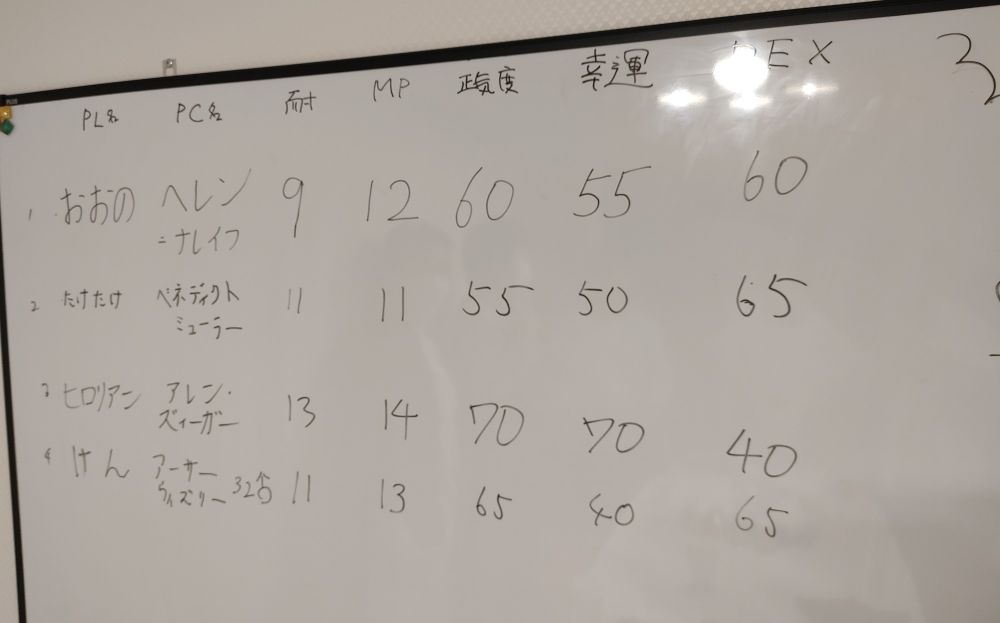 PL名 PC名 耐 MP 正気度 幸運 DEX 3
1 おおの ヘレン 9 12 60 55 60
=ナレイフ
2 たけたけ ベネディクト 11 11 55 50 65
ミューラー
3 ヒロリアン アレン・ 13 14 70 70 40
ズィーガー
4 けん アーサー 11 13 65 40 65
ウィズリー 32才